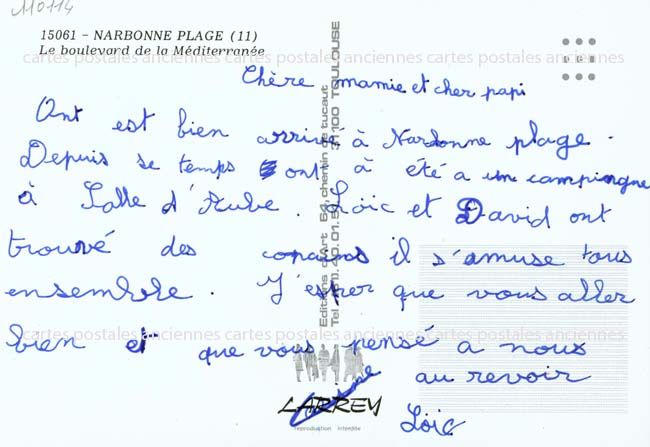 110114
15061 - NARBONNE PLAGE (11)
Le boulevard de la Méditerranée
cartes postales anciennes cartes postales anciennes cartes postales anciennes
Chère mamie et cher papi
Ont est bien arrivé à Nardonne plage.
Depuis se temps ont à été a un campiongne
à Salle d'Aube. Loïc et David ont
trouvé des copains il s'amuse tous
ensemble. J'esper que vous aller
bien et que vous pensé a nous
au revoir
Loïc
cartes postales anciennes cartes postales anciennes cartes postales anciennes
Editions d'Art 64, chemin de tucaut
31100 TOULOUSE
LARREY
reproduction interdite